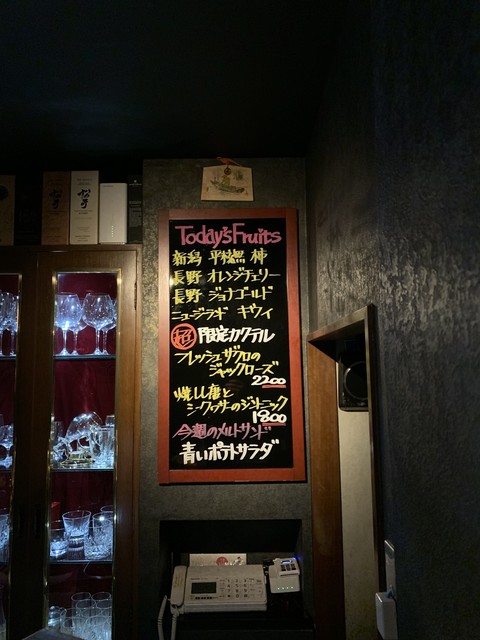 Today's Fruits
新潟 平核無 柿
長野 オレンジチェリー
長野 ジョナゴールド
ニュージランド キウイ
限定カクテル
フレッシュザクロの
ジャックローズ
2200
焼リンゴと
シークヮサーのジントニック
1800
今週のメルトサンド
青いポテトサラダ